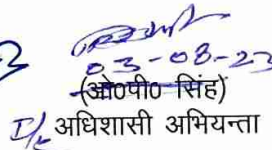 03-08-23
(ओ०पी० सिंह)
I/c अधिशासी अभियन्ता